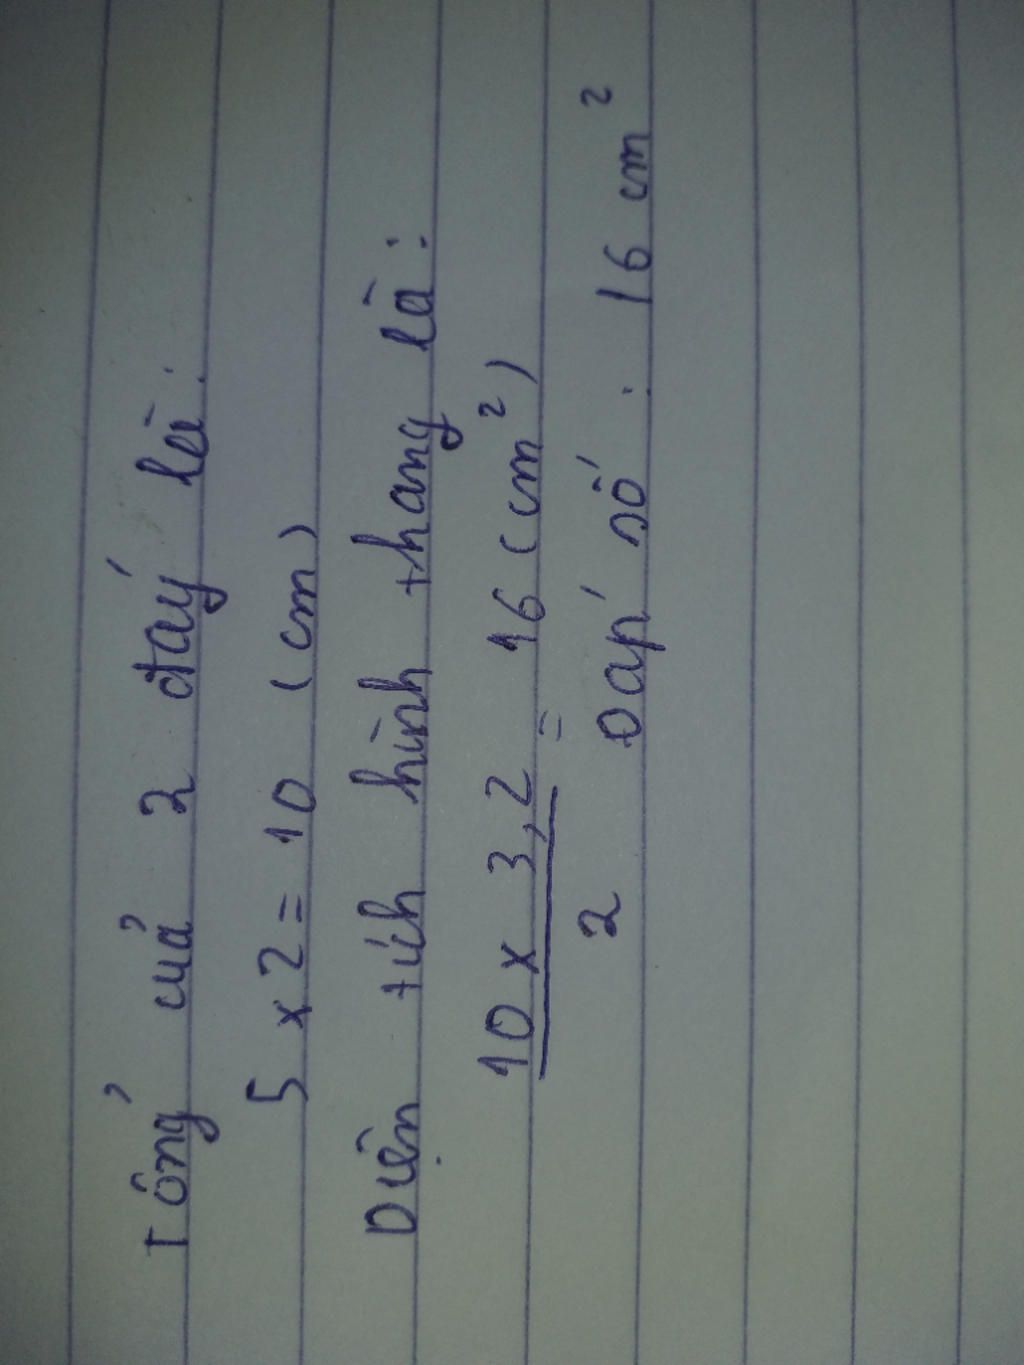 Tổng của 2 đáy là:
5 x 2 = 10 (cm)
Diện tích hình thang là:
10 x 3,2 = 16 (cm²)
2
Đáp số: 16 cm²